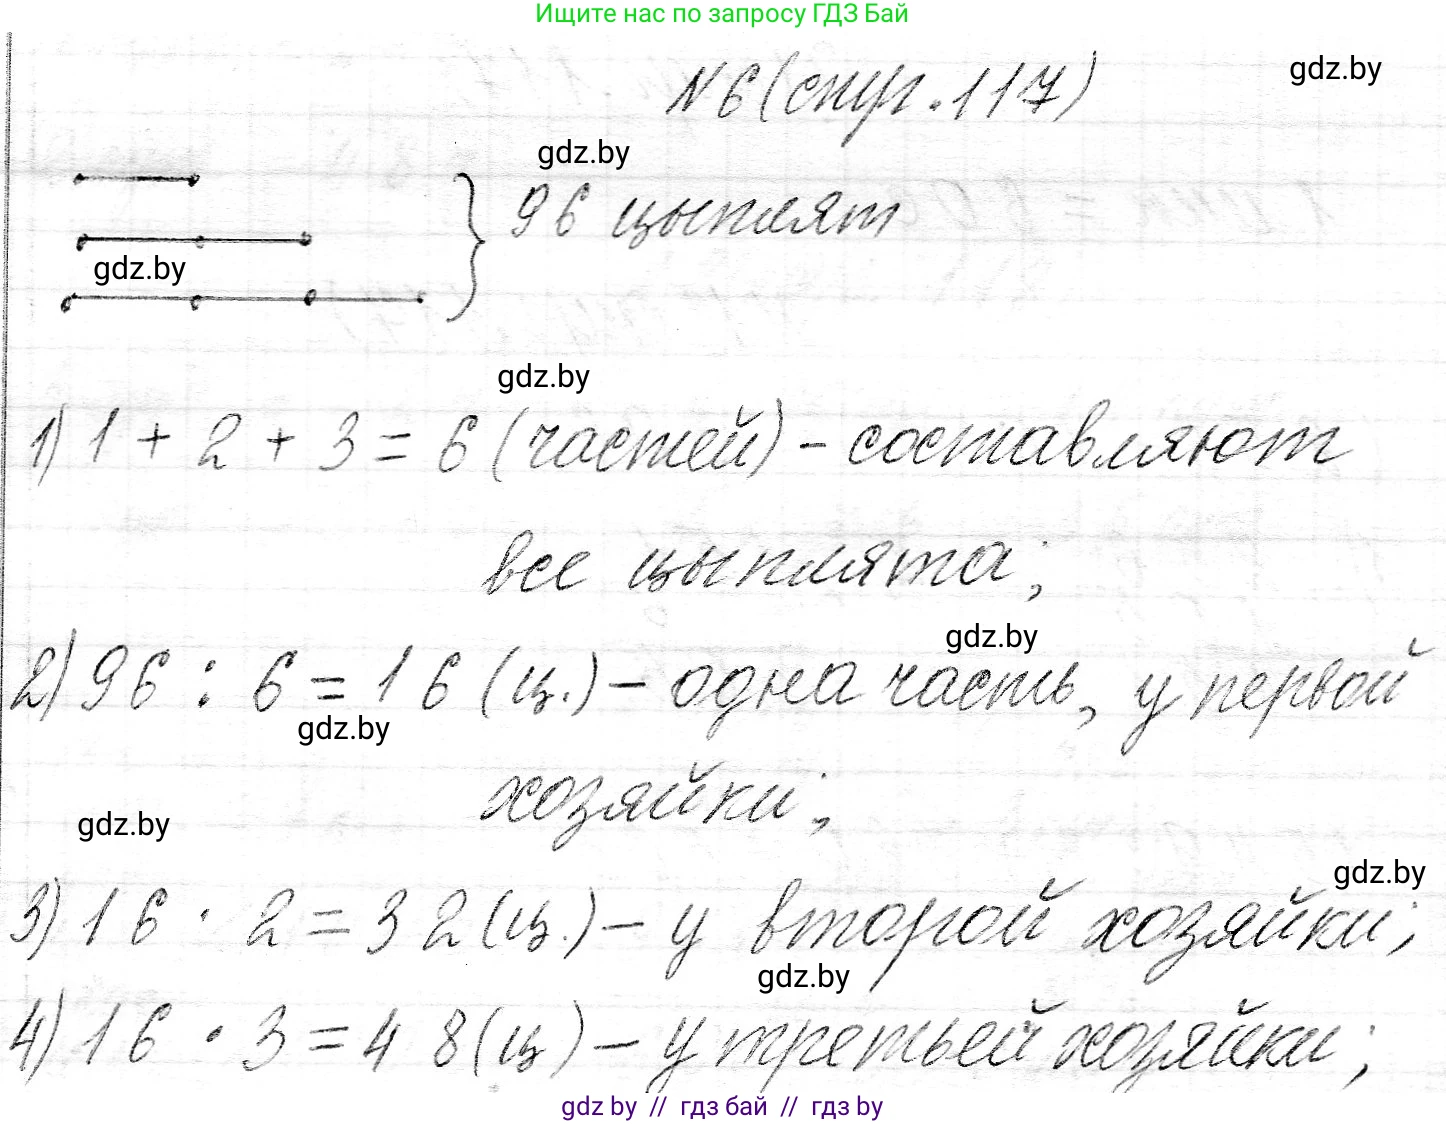 Ищите нас по запросу ГДЗ Бай
№6 (стр. 117)
gdz.by
gdz.by
} 96 цыплят
gdz.by
gdz.by
1) 1 + 2 + 3 = 6 (частей) - составляют
все цыплята;
gdz.by
2) 96 : 6 = 16 (ц.) - одна часть, у первой
gdz.by
хозяйки;
gdz.by
gdz.by
3) 16 · 2 = 32 (ц.) - у второй хозяйки;
gdz.by
4) 16 · 3 = 48 (ц) - у третьей хозяйки;
gdz by // гдз бай // гдз by